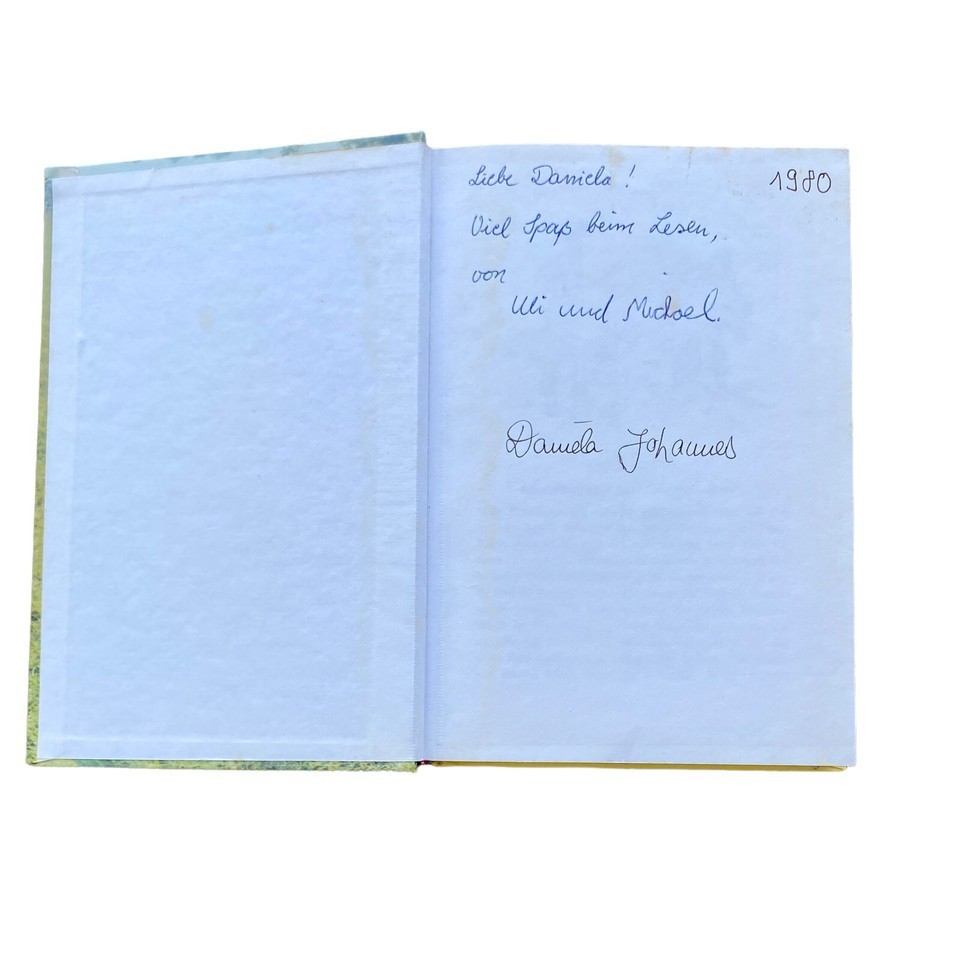 Liebe Daniela!
1980
Viel Spaß beim Lesen,
von
Uli und Michael.
Daniela Johannes